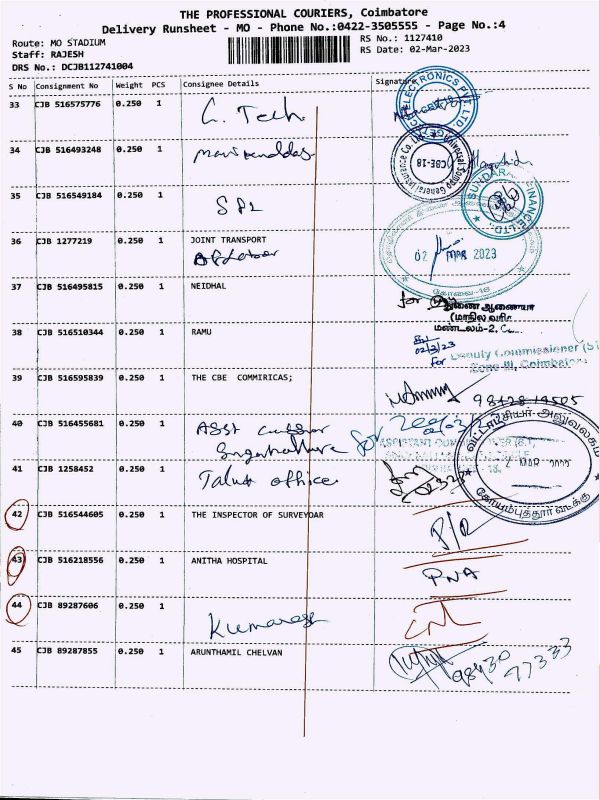 THE PROFESSIONAL COURIERS, Coimbatore
Delivery Runsheet - MO - Phone No.:0422-3505555 - Page No.:4
Route: MO STADIUM
RS No.: 1127410
Staff: RAJESH
RS Date: 02-Mar-2023
DRS No.: DCJB112741004
S No Consignment No Weight PCS Consignee Details Signature
33 CJB 516575776 0.250 1 G. Tech
34 CJB 516493248 0.250 1
35 CJB 516549184 0.250 1 SPL
36 CJB 1277219 0.250 1 JOINT TRANSPORT
02 MAR 2023
37 CJB 516495815 0.250 1 NEIDHAL for
(மாநில வரி
மண்டலம்-2,
38 CJB 516510344 0.250 1 RAMU
02/3/23
for Deputy Commissioner (ST
Zone III, Coimbatore
39 CJB 516595839 0.250 1 THE CBE COMMIRICAS;
40 CJB 516455681 0.250 1 Asst
41 CJB 1258452 0.250 1 Taluk office
வட்டாட்சியர் அலுவலகம்
கோயம்புத்தூர் வடக்கு
42 CJB 516544605 0.250 1 THE INSPECTOR OF SURVEYOAR
43 CJB 516218556 0.250 1 ANITHA HOSPITAL PNA
44 CJB 89287606 0.250 1 Kumaresh
45 CJB 89287855 0.250 1 ARUNTHAMIL CHELVAN
98430
77333